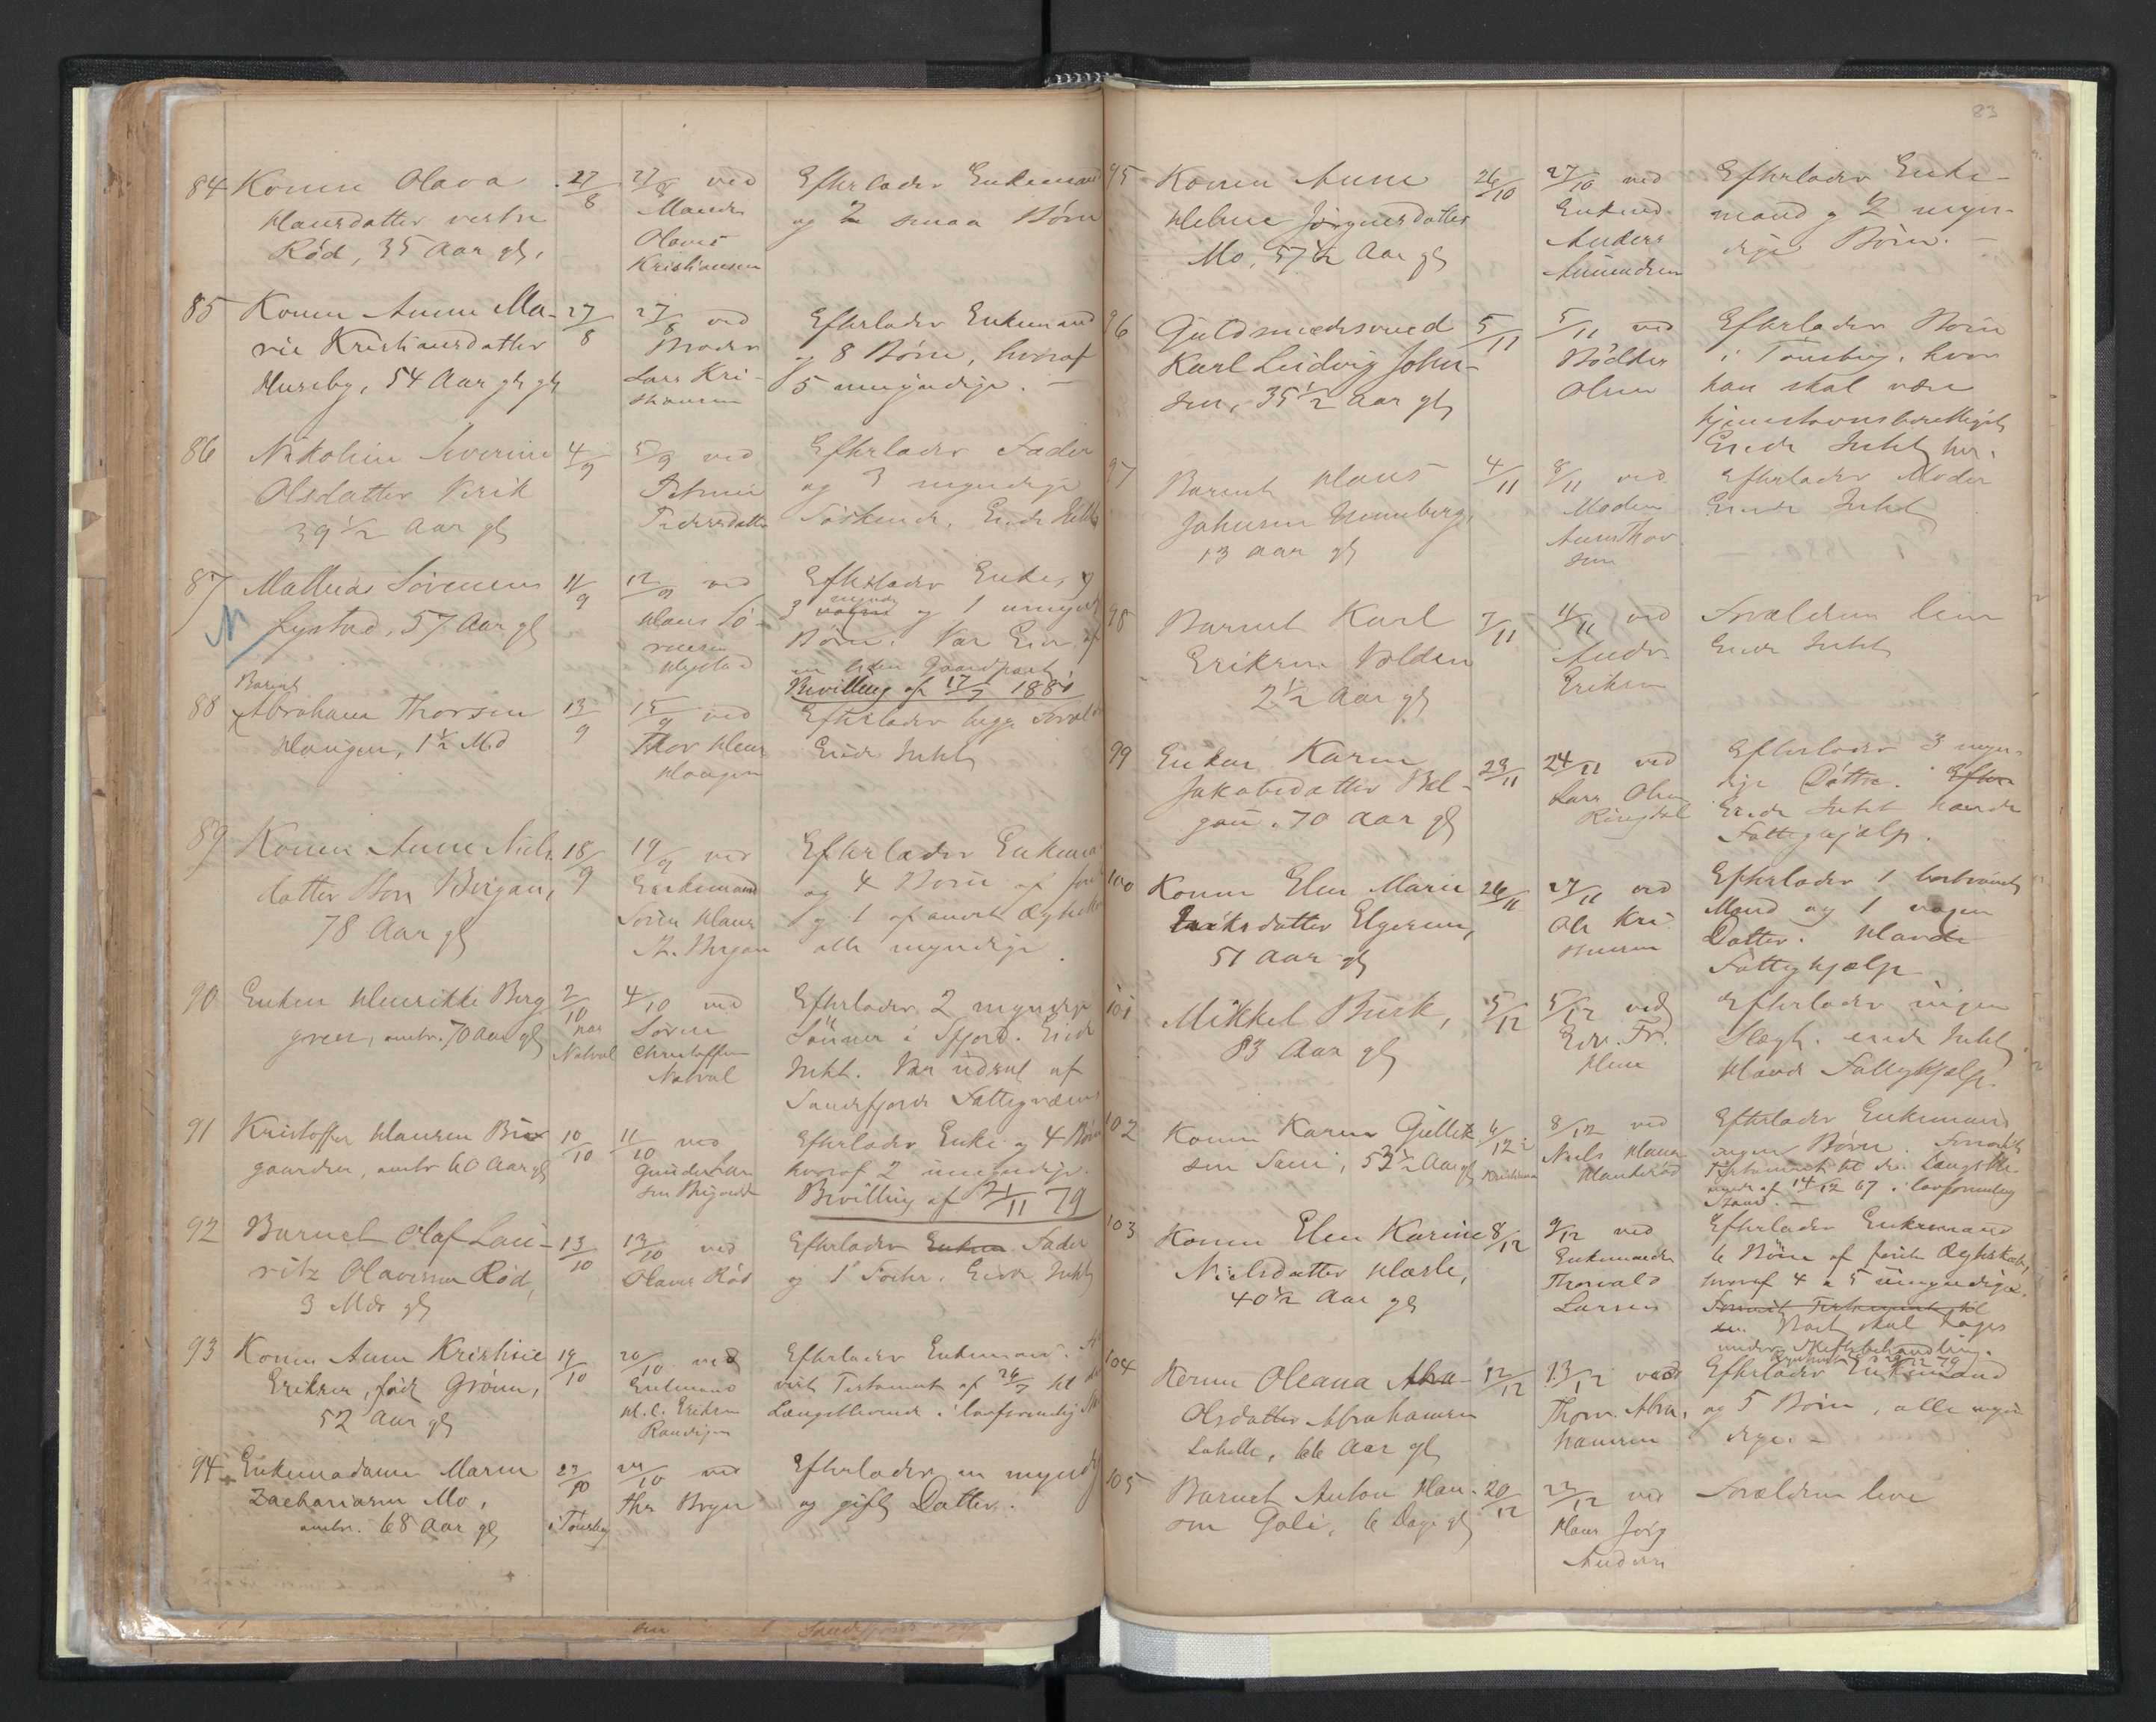 83
84 Konen Olava 27/8 27/8 ved Efterlader Enkemand
Hansdatter vestre Manden og 2 smaa Børn
Rød, 35 Aar gl. Olaves
Kristiansen
85 Konen Anne Ma- 27/8 27/8 ved Efterlader Enkemand
rie Kristiansdatter Broder og 8 Børn, hvoraf
Huseby, 54 Aar gl. gl Lars Kri- 5 umyndige. —
stiansen
86 Nikoline Severine 4/9 5/9 ved Efterlader Fader
Olsdatter Virik Petrine og 3 myndige
39 1/2 Aar gl Pedersdatter Søskende. Eiede Intet
87 Mathias Sørensen 11/9 12/9 ved Efterlader Enke, og
N Fystad, 57 Aar gl Hans Sø- 3 voxne myndg og 1 umyndg
rensen Børn. Var Eier af
en liden Gaardpart
Bevilling af 17/7 1881
Barnet
88 Abraham Thorsen 13/9 15/9 ved Efterlader begge Foræld
Haugen, 1 1/2 Md Thor Hans Eiede Intet
Haugen
89 Konen Anne Niels 18/9 19/9 ved Efterlader Enkema
datter Bergan, Enkemand og 4 Børn af
78 Aar gl Søren Hans og 1 af andet Ægtesk
Bergan alle myndige.
90 Enken Henrikke Berg 2/10 4/10 ved Efterlader 2 myndige
green, omtr. 70 Aar gl paa Søren Sønner i Sfjord. Eiede
Natval Christoffersen Intet. Var udsat af
Natval Sandefjords Fattigvæsen
91 Kristoffer Hansen 10/10 11/10 ved Efterlader Enke og 4 Børn
gaarden, omtr 60 Aar gl Gunder Lar hvoraf 2 umyndige.
sen Bevilling af 21/11 79
92 Barnet Olaf Lau- 13/10 13/10 ved Efterlader Enken Fader
ritz Olavesen Rød, Olaves Rød og 1 Søster. Eiede Intet
3 Mdr gl
93 Konen Anne Kristine 19/10 20/10 ved Efterlader Enkemand.
Eriksen, født Grønn, Enkemand Testament af 26/7 til
52 Aar gl H. C. Eriksen Længstlevende i lovformelig
Ranvigen
94 Enkemadame Maren 23/10 24/10 ved Efterlader en myndg
Zachariasen Mo, Thr Bryn og gift Datter.
omtr. 68 Aar gl i Tønsberg
95 Konen Anne 26/10 27/10 ved Efterlader Enke-
Helene Jørgensdatter Enkemd mand og 2 myn-
Mo, 57 1/2 Aar gl Anders dige Børn. —
Amundsen
96 Guldsmedsvend 5/11 5/11 ved Efterlader Børn
Karl Ludvig John- Bødker i Tønsberg, hvor
sen, 35 1/2 Aar gl Olsen han skal være
hjemstavnsberettiget
Eiede Intet her.
97 Barnet Hans 4/11 8/11 ved Efterlader Moder
Johansen Moderen Eiede Intet
13 Aar gl Anne Thor
sen
98 Barnet Karl 7/11 11/11 ved Forældrene leve
Eriksen Volden Andr. Eiede Intet
2 1/2 Aar gl Eriksen
99 Enken Karen 23/11 24/11 ved Efterlader 3 myn-
Jakobsdatter Bel- Lars Olsen dige Døttre. Efter
gau. 70 Aar gl Ringdal Eiede Intet havde
Fattighjælp.
100 Konen Elen Marie 26/11 27/11 ved Efterlader 1 bortrømt
datter Elgesem, Ole Kri Mand og 1 voxen
51 Aar gl Datter. Havde
Fattighjælp
101 Mikkel Busk, 5/12 5/12 ved Efterlader ingen
83 Aar gl Edv. Fr. Slægt. eiede Intet
Havde Fattighjælp.
102 Konen Karen Gullik 6/12 i 8/12 ved Efterlader Enkemand
sen 53 1/2 Aar gl Kristiania Niels Hansen ingen Børn.
Testament til den Længstle-
vende af 14/12 67 i lovformelig
Stand. —
103 Konen Elen Karine 8/12 9/12 ved Efterlader Enkemand
Nielsdatter Hasle, Enkemanden 6 Børn af første Ægteskab,
40 1/2 Aar gl Thorvald hvoraf 4 a 5 umyndige.
Larsen Testament til
Boet skal tages
under Skiftebehandling.
104 Konen Oleana Abra- 12/12 13/12 ved Efterlader Enkemand
Olsdatter Abrahamsen Thorv. Abra- og 5 Børn, alle myn-
Lahelle, 66 Aar gl hamsen dige. —
105 Barnet Anton Han- 20/12 22/12 ved Forældrene leve
sen Goli, 6 Dage gl Hans Jørg
Andersen